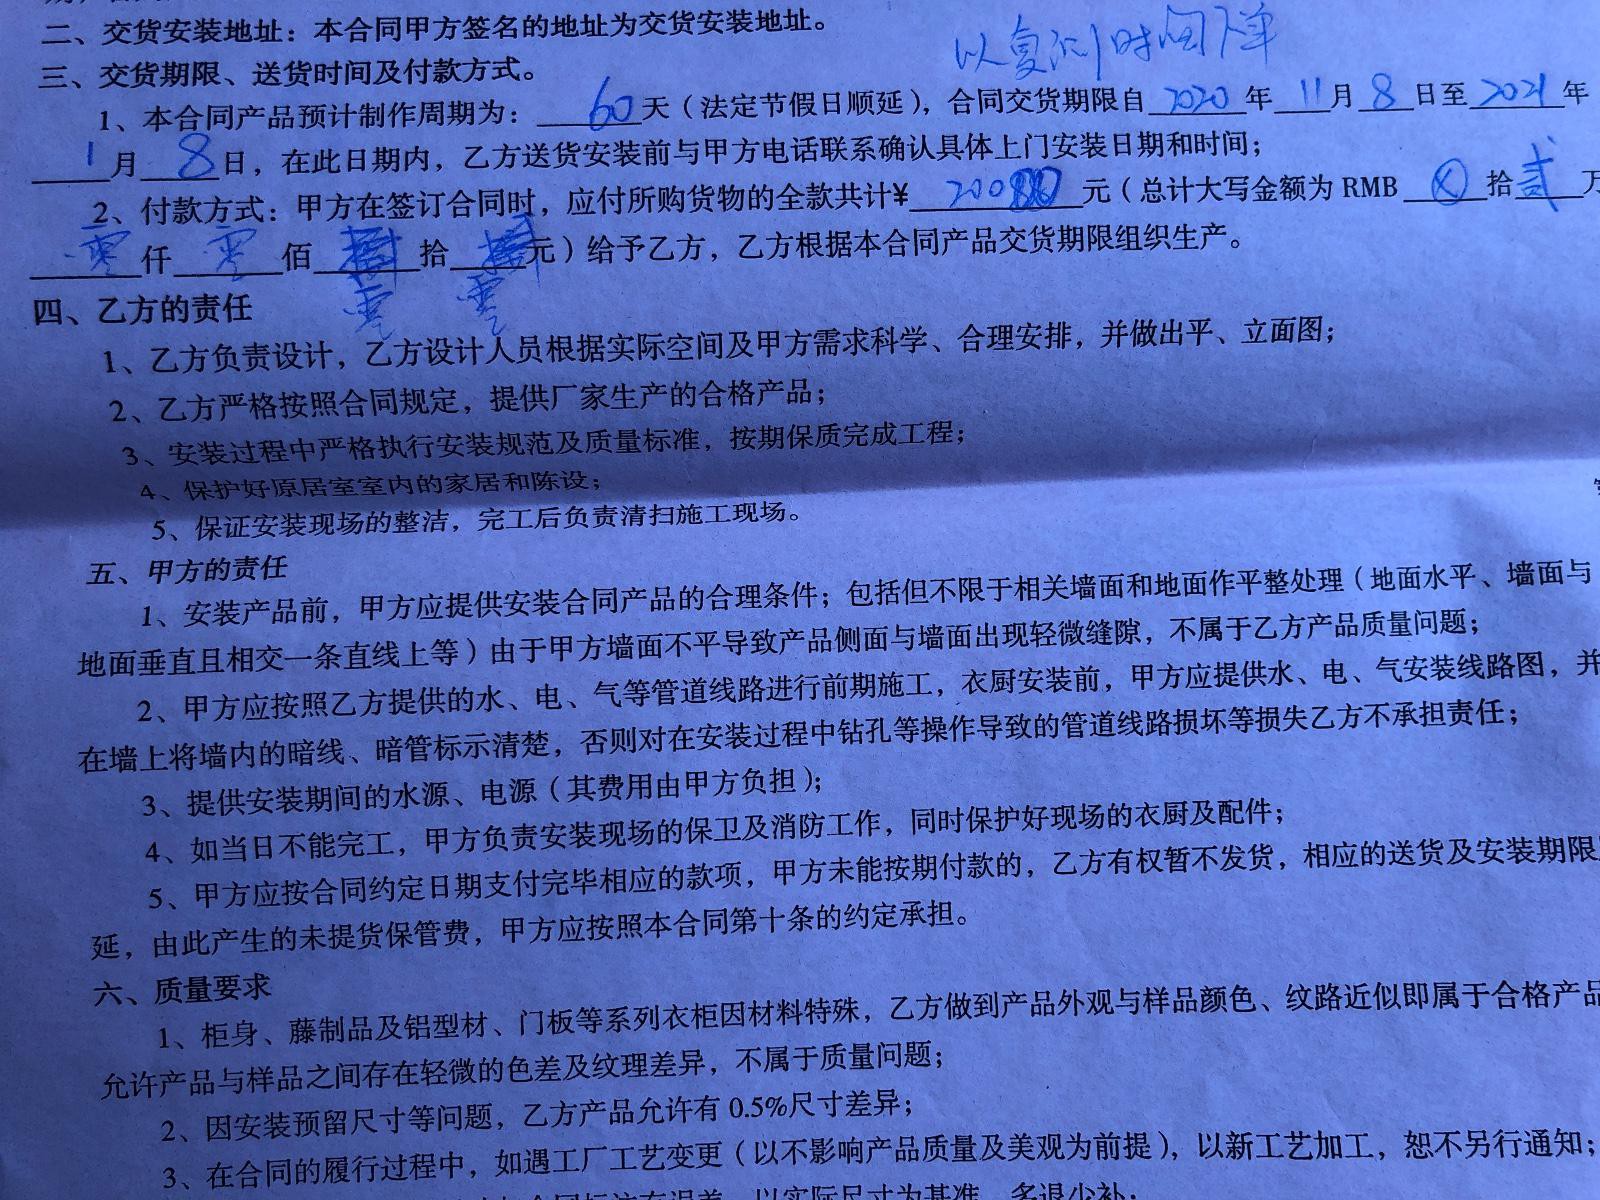 二、交货安装地址：本合同甲方签名的地址为交货安装地址。
以复测时间下单
三、交货期限、送货时间及付款方式。
1、本合同产品预计制作周期为：60天（法定节假日顺延），合同交货期限自2020年11月8日至2021年
1月8日，在此日期内，乙方送货安装前与甲方电话联系确认具体上门安装日期和时间；
2、付款方式：甲方在签订合同时，应付所购货物的全款共计¥200元（总计大写金额为RMB ⊗拾贰万
零仟零佰拾元）给予乙方，乙方根据本合同产品交货期限组织生产。
零 零
四、乙方的责任
1、乙方负责设计，乙方设计人员根据实际空间及甲方需求科学、合理安排，并做出平、立面图；
2、乙方严格按照合同规定，提供厂家生产的合格产品；
3、安装过程中严格执行安装规范及质量标准，按期保质完成工程；
4、保护好原居室室内的家居和陈设；
5、保证安装现场的整洁，完工后负责清扫施工现场。
五、甲方的责任
1、安装产品前，甲方应提供安装合同产品的合理条件；包括但不限于相关墙面和地面作平整处理（地面水平、墙面与
地面垂直且相交一条直线上等）由于甲方墙面不平导致产品侧面与墙面出现轻微缝隙，不属于乙方产品质量问题；
2、甲方应按照乙方提供的水、电、气等管道线路进行前期施工，衣厨安装前，甲方应提供水、电、气安装线路图，并
在墙上将墙内的暗线、暗管标示清楚，否则对在安装过程中钻孔等操作导致的管道线路损坏等损失乙方不承担责任；
3、提供安装期间的水源、电源（其费用由甲方负担）；
4、如当日不能完工，甲方负责安装现场的保卫及消防工作，同时保护好现场的衣厨及配件；
5、甲方应按合同约定日期支付完毕相应的款项，甲方未能按期付款的，乙方有权暂不发货，相应的送货及安装期限
延，由此产生的未提货保管费，甲方应按照本合同第十条的约定承担。
六、质量要求
1、柜身、藤制品及铝型材、门板等系列衣柜因材料特殊，乙方做到产品外观与样品颜色、纹路近似即属于合格产品
允许产品与样品之间存在轻微的色差及纹理差异，不属于质量问题；
2、因安装预留尺寸等问题，乙方产品允许有0.5%尺寸差异；
3、在合同的履行过程中，如遇工厂工艺变更（以不影响产品质量及美观为前提），以新工艺加工，恕不另行通知；
以实际尺寸为基准，多退少补；